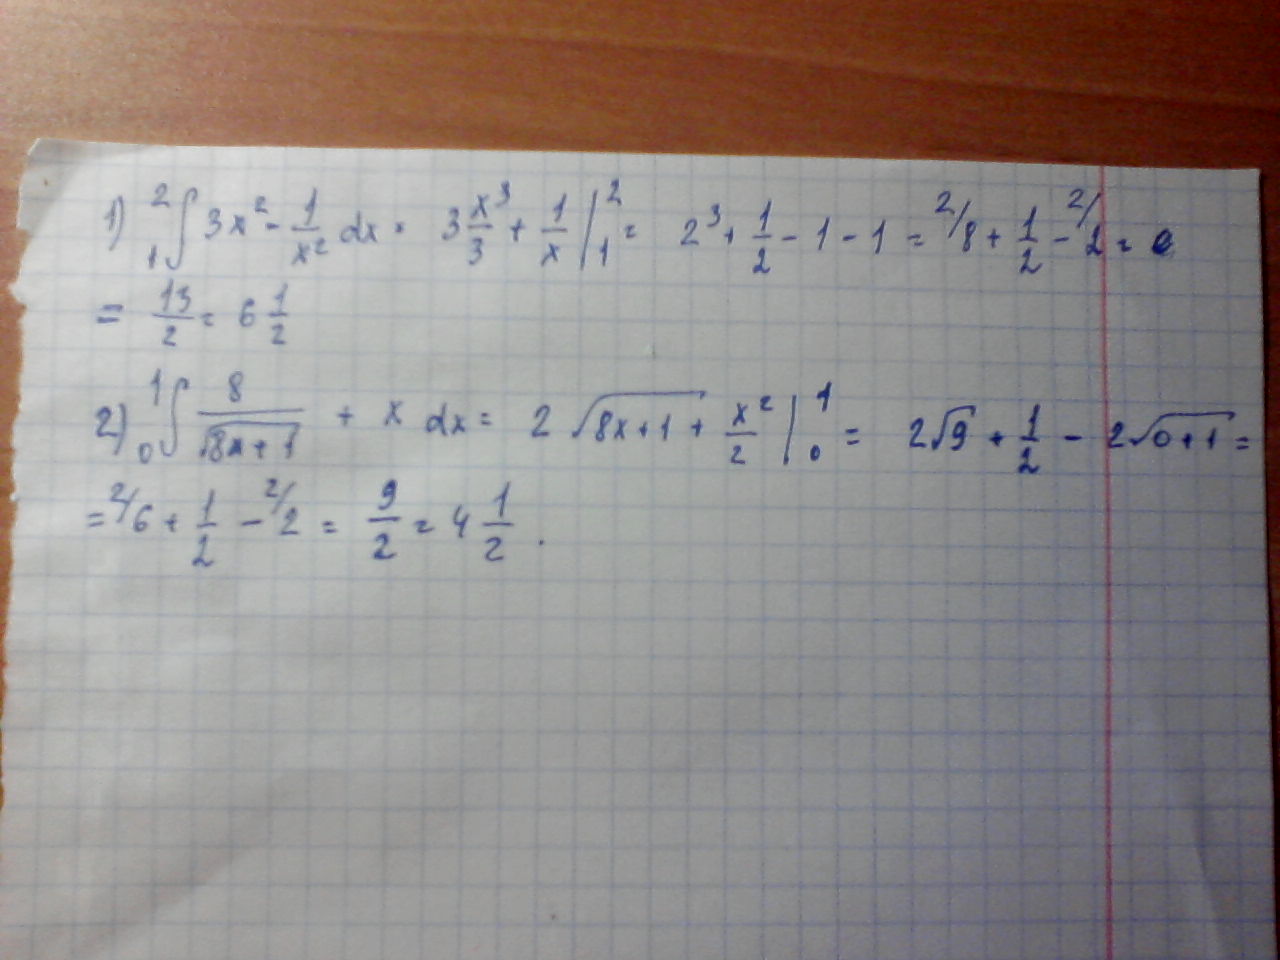 1) ₁²∫ 3x² - 1/x² dx = 3 x³/3 + 1/x |₁² = 2³ + 1/2 - 1 - 1 = ²/8 + 1/2 - ²/2 =
= 13/2 = 6 1/2
2) ₀¹∫ 8/√(8x+1) + x dx = 2 √(8x+1) + x²/2 |₀¹ = 2√9 + 1/2 - 2√(0+1) =
= ²/6 + 1/2 - ²/2 = 9/2 = 4 1/2 .